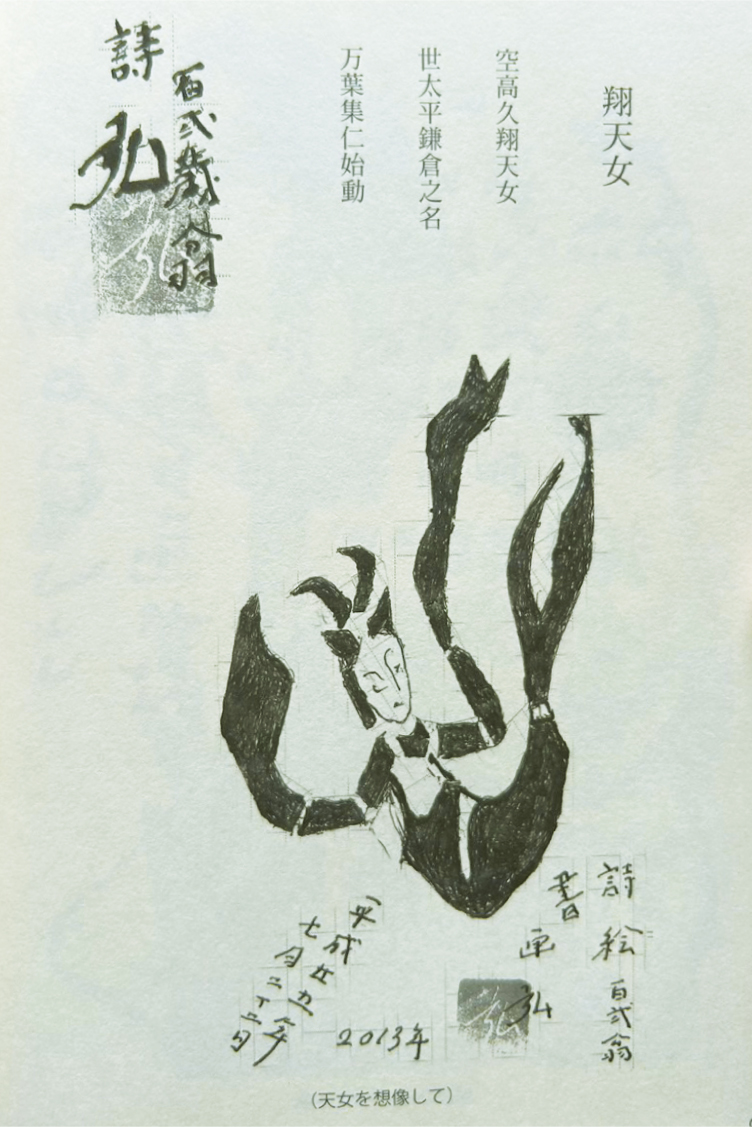 翔天女
空高久翔天女
世太平鎌倉之名
万葉集仁始動
百弐歳翁
詩 弘
詩絵 百弐翁
書画 弘
2013年
平成廿五年
七月二十五日
(天女を想像して)